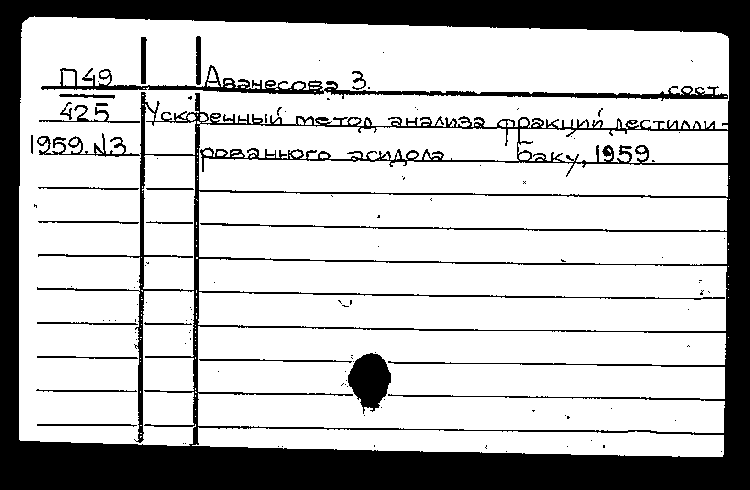 П49 Аванесова, З. , сост.
425 Ускоренный метод анализа фракций дестилли-
1959.N3 рованного асидола. Баку, 1959.